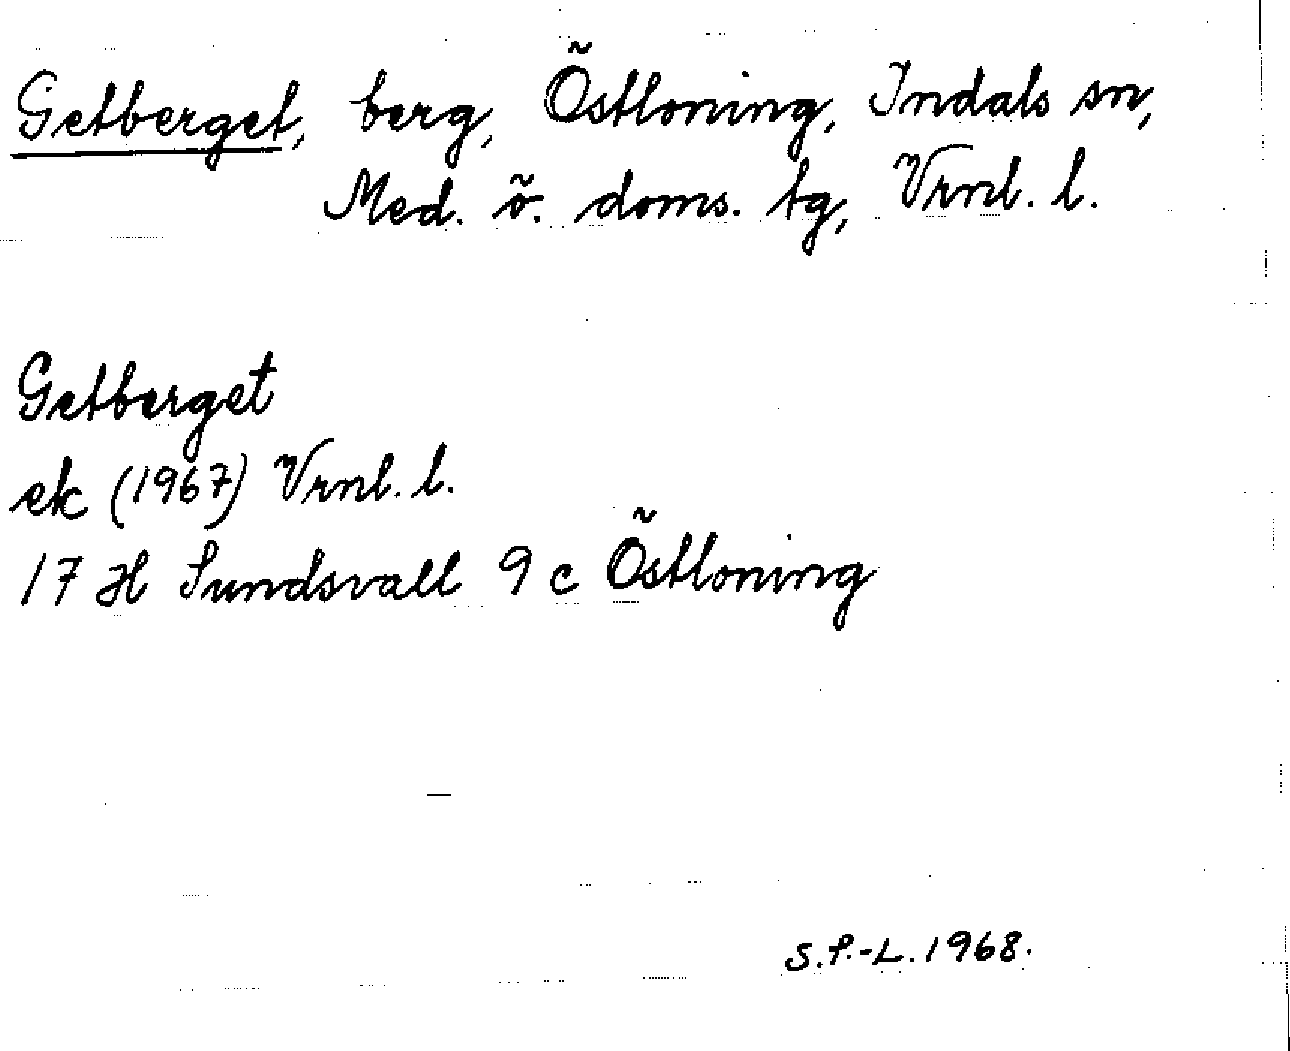 Getberget, berg, Östloning, Indals sn,
Med. ö. doms. tg, Vrnl. l.
Getberget
ek (1967) Vrnl. l.
17 H Sundsvall 9 c Östloning
S.P.-L. 1968.